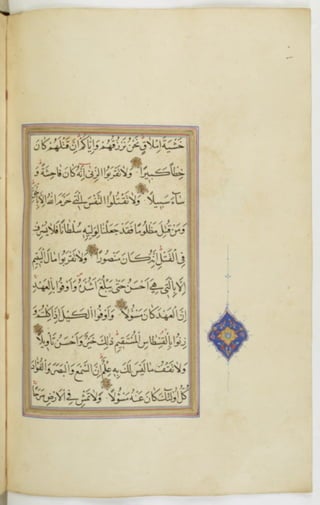 خَشْيَةَ اِمْلَاقٍ نَحْنُ نَرْزُقُهُمْ وَاِيَّاكُمْ اِنَّ قَتْلَهُمْ كَانَ
خِطْأً كَبِيرًا وَلَا تَقْرَبُوا الزِّنٰى اِنَّهُ كَانَ فَاحِشَةً وَ
سَآءَ سَبِيلًا وَلَا تَقْتُلُوا النَّفْسَ الَّتِى حَرَّمَ اللهُ اِلَّا بِالْحَقِّ
وَمَنْ قُتِلَ مَظْلُومًا فَقَدْ جَعَلْنَا لِوَلِيِّهِ سُلْطَانًا فَلَا يُسْرِفْ
فِى الْقَتْلِ اِنَّهُ كَانَ مَنْصُورًا وَلَا تَقْرَبُوا مَالَ الْيَتِيمِ
اِلَّا بِالَّتِى هِىَ اَحْسَنُ حَتّٰى يَبْلُغَ اَشُدَّهُ وَاَوْفُوا بِالْعَهْدِ
اِنَّ الْعَهْدَ كَانَ مَسْئُولًا وَاَوْفُوا الْكَيْلَ اِذَا كِلْتُمْ وَ
زِنُوا بِالْقِسْطَاسِ الْمُسْتَقِيمِ ذٰلِكَ خَيْرٌ وَاَحْسَنُ تَأْوِيلًا
وَلَا تَقْفُ مَا لَيْسَ لَكَ بِهِ عِلْمٌ اِنَّ السَّمْعَ وَالْبَصَرَ وَالْفُؤَادَ
كُلُّ اُولٰئِكَ كَانَ عَنْهُ مَسْئُولًا وَلَا تَمْشِ فِى الْاَرْضِ مَرَحًا